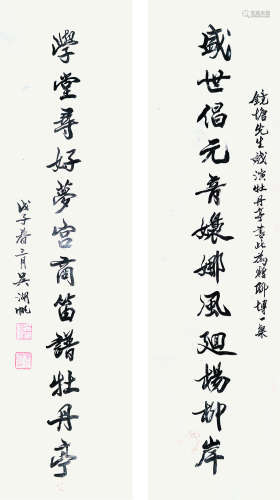 鏡塘先生戲演牡丹亭書此為贈聊博一粲
盛世倡元音嬝娜風迴楊柳岸
學堂尋好夢宮商笛譜牡丹亭
戊子春三月吳湖帆